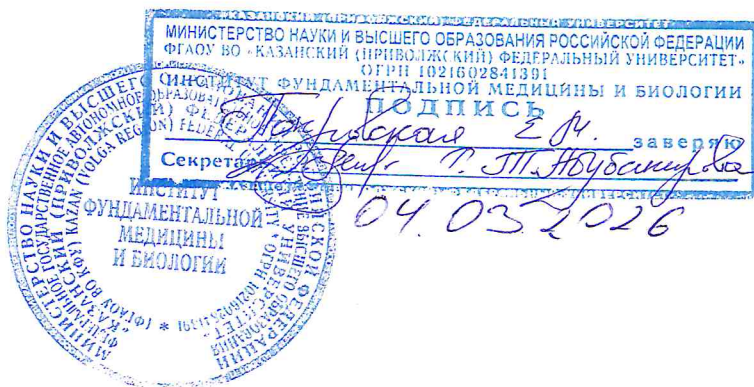 КАЗАНСКИЙ (ПРИВОЛЖСКИЙ) ФЕДЕРАЛЬНЫЙ УНИВЕРСИТЕТ
МИНИСТЕРСТВО НАУКИ И ВЫСШЕГО ОБРАЗОВАНИЯ РОССИЙСКОЙ ФЕДЕРАЦИИ
ФГАОУ ВО «КАЗАНСКИЙ (ПРИВОЛЖСКИЙ) ФЕДЕРАЛЬНЫЙ УНИВЕРСИТЕТ»
ОГРН 1021602841391
ИНСТИТУТ ФУНДАМЕНТАЛЬНОЙ МЕДИЦИНЫ И БИОЛОГИИ
ПОДПИСЬ
заверяю
Секретарь Абубакирова
04.03.2026
МИНИСТЕРСТВО НАУКИ И ВЫСШЕГО ОБРАЗОВАНИЯ РОССИЙСКОЙ ФЕДЕРАЦИИ
ФЕДЕРАЛЬНОЕ ГОСУДАРСТВЕННОЕ АВТОНОМНОЕ ОБРАЗОВАТЕЛЬНОЕ УЧРЕЖДЕНИЕ ВЫСШЕГО ОБРАЗОВАНИЯ
"КАЗАНСКИЙ (ПРИВОЛЖСКИЙ) ФЕДЕРАЛЬНЫЙ УНИВЕРСИТЕТ"
(ФГАОУ ВО КФУ) KAZAN (VOLGA REGION) FEDERAL UNIVERSITY * ОГРН 1021602841391 *
ИНСТИТУТ
ФУНДАМЕНТАЛЬНОЙ
МЕДИЦИНЫ
И БИОЛОГИИ